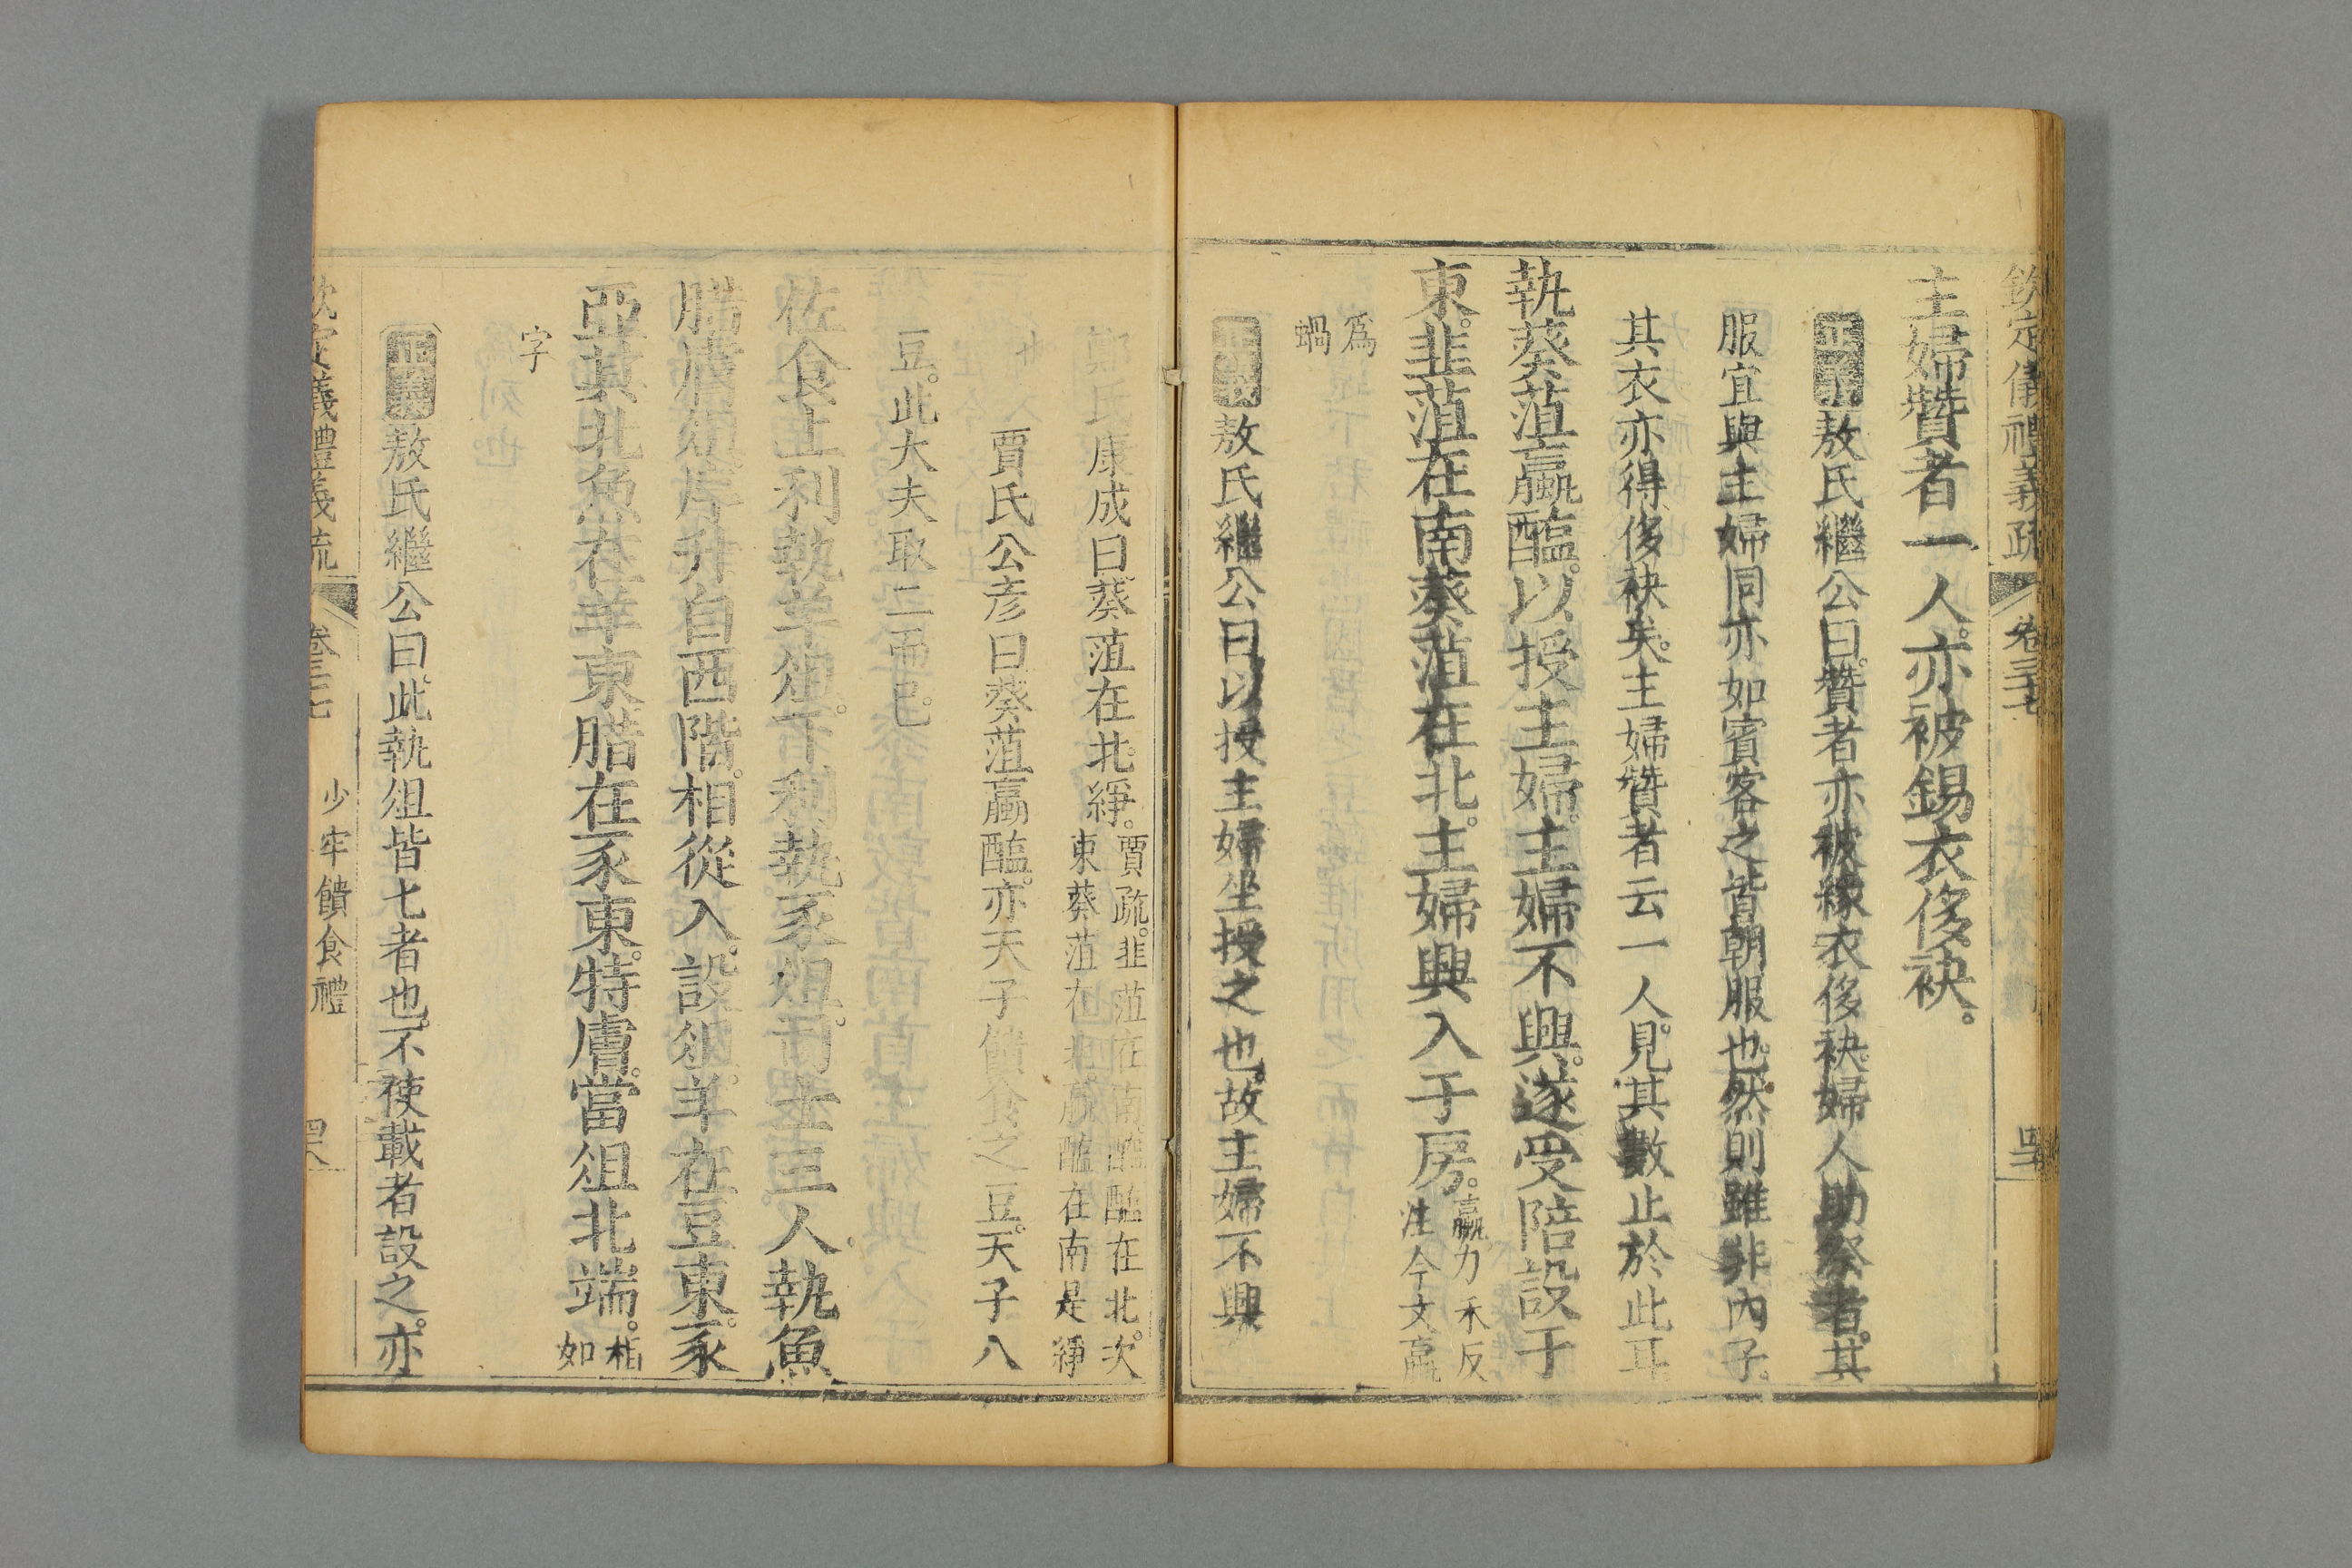 欽定儀禮義疏 卷三十七
主婦贊者一人。亦被錫衣侈袂。
正義 敖氏繼公曰。贊者亦被緣衣侈袂。婦人助祭者。其
服宜與主婦同亦如賓客之皆朝服也。然則雖非內子。
其衣亦得侈袂矣。主婦贊者云一人。見其數止於此耳。
執葵菹蠃醢。以授主婦。主婦不興。遂受陪設于
東。韭菹在南。葵菹在北。主婦興入于房。蠃。力禾反
注今文蠃
爲
蝸
正義 敖氏繼公曰以授主婦坐授之也。故主婦不興
康成曰葵菹在北。綪。賈疏。韭菹在南。醓醢在北。次
東葵菹在北。蠃醢在南是綪
賈氏公彥曰葵菹蠃醢。亦天子饋食之豆。天子八
豆。此大夫取二而已。
佐食上利執羊俎。下利執豕俎。司士三人。執魚
腊膚俎。序升自西階。相從入。設俎。羊在豆東。豕
亞其北。魚在羊東。腊在豕東。特膚。當俎北端。相
如
字
正義 敖氏繼公曰。此執俎皆七者也。不使載者設之。亦
欽定儀禮義疏 卷三十七 少牢饋食禮 四八